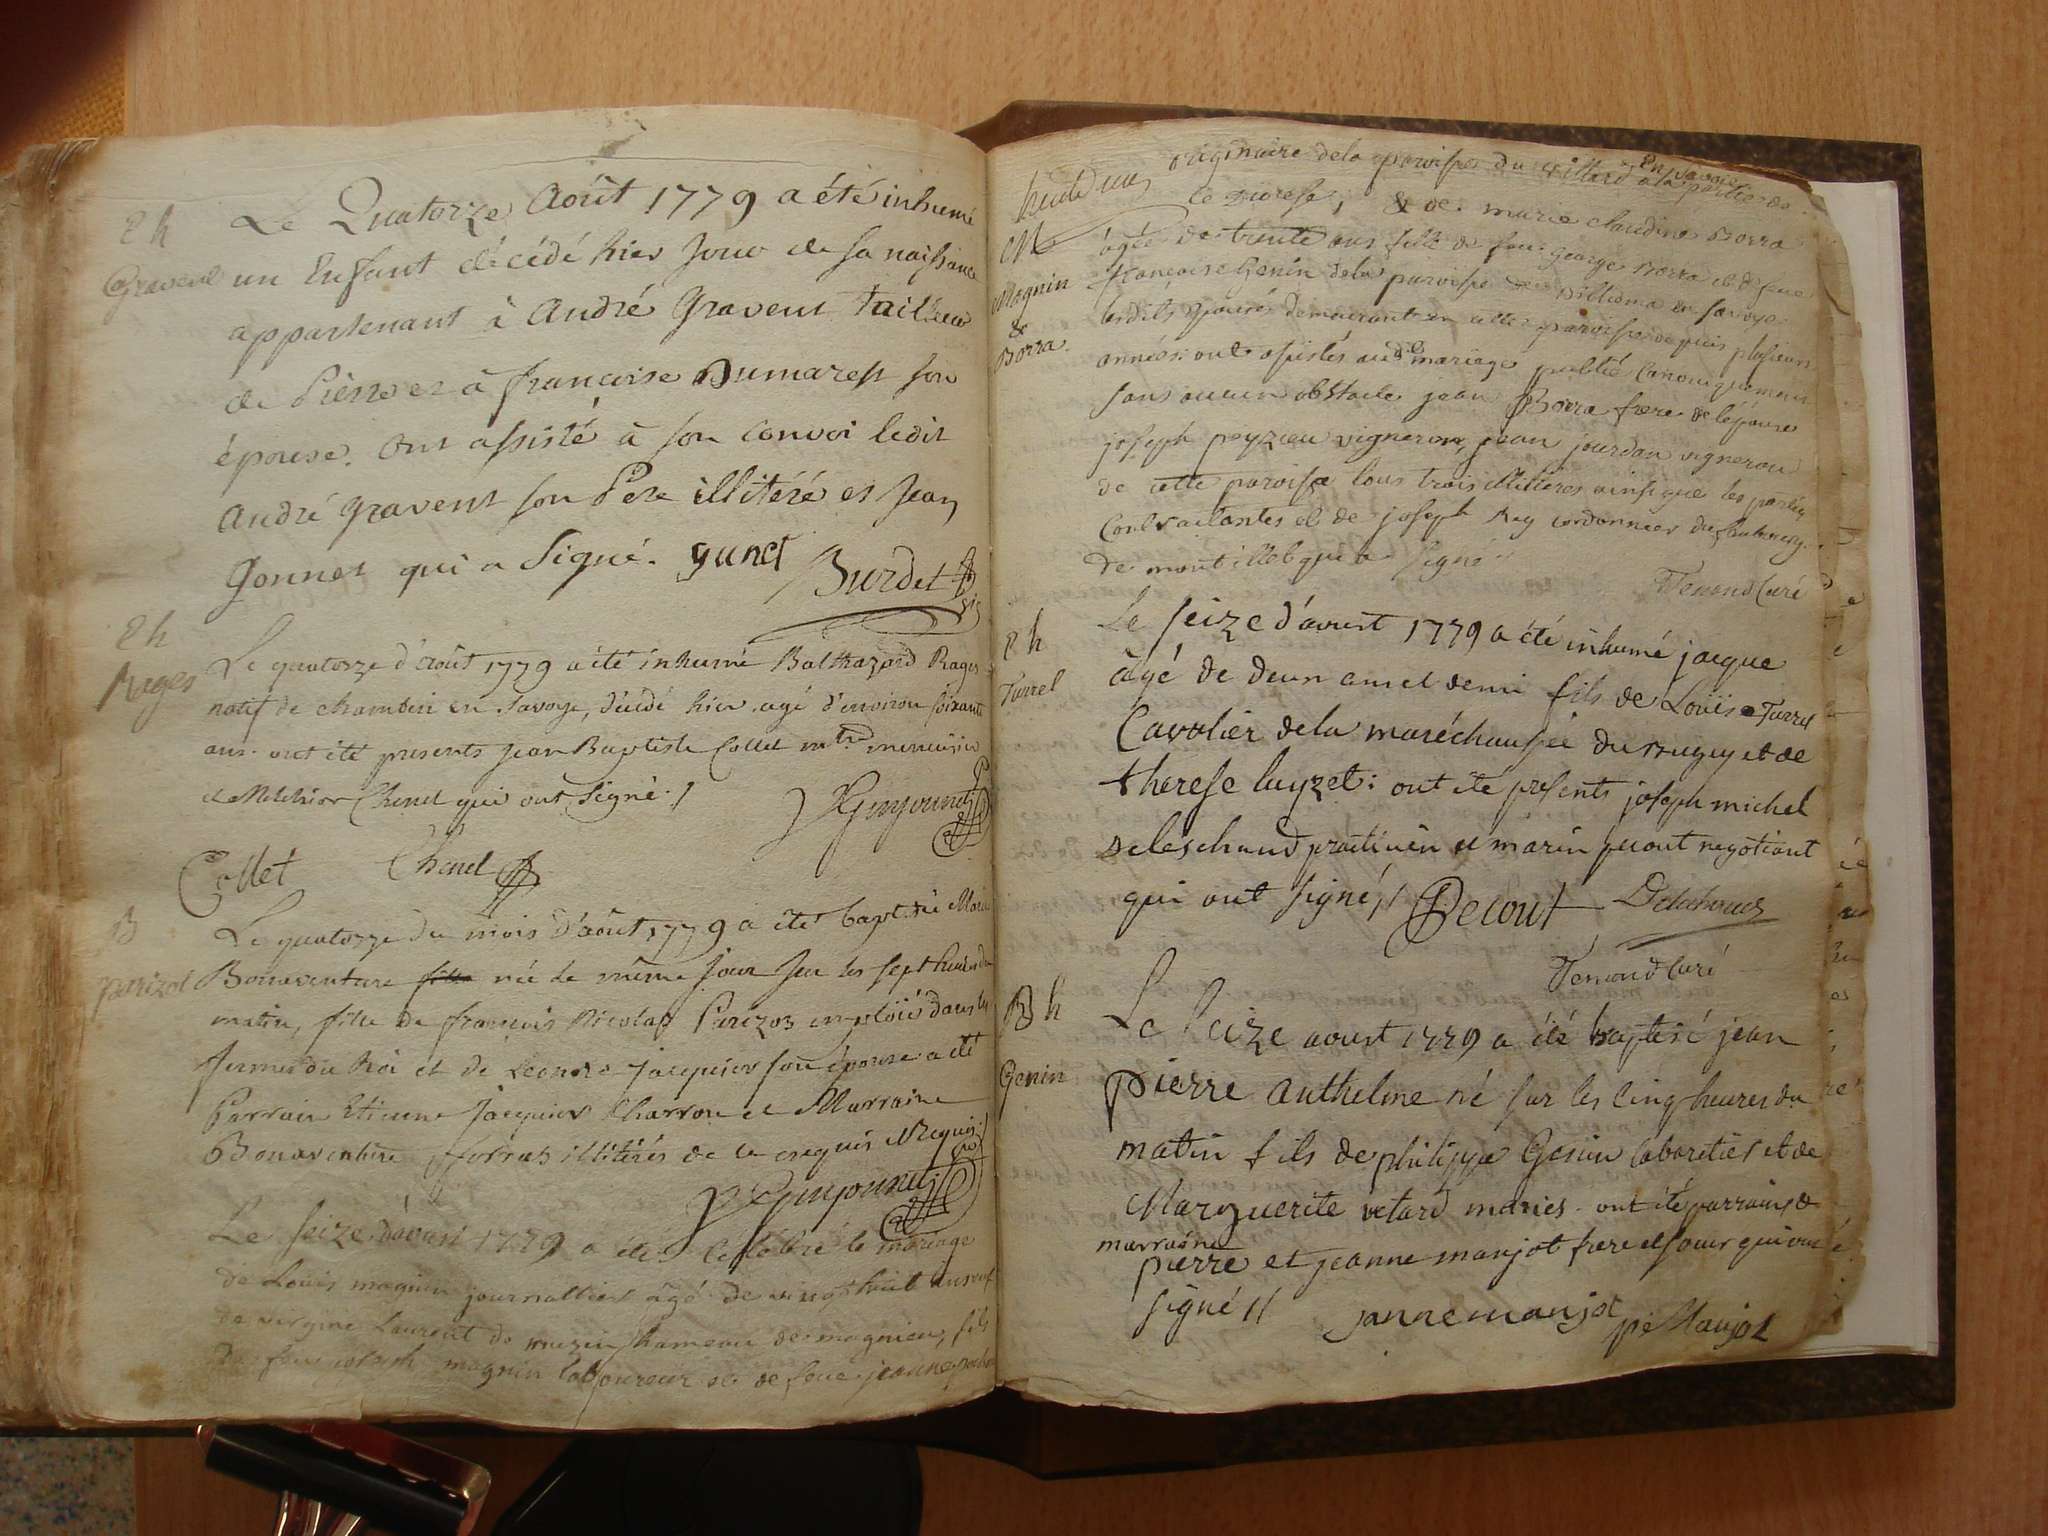 Eh
Gravent
Le Quatorze Août 1779 a été inhumé
un Enfant décédé hier Jour de sa naissance
appartenant à André Gravent tailleur
de Pierres et à françoise Dumarest son
épouse. Ont assisté à son convoi ledit
André Gravent son Pere illitéré et Jean
Gonnet qui a Signé. gunet Burdet
Eh
Rages
Le quatorze d'Août 1779 a été inhumé Balthazard Rages
natif de chamberi en Savoye, décédé hier agé d'environ soixante
ans. ont été presents Jean Baptiste Collet mtre menuisier
et Melchior Chenel qui ont Signé./
Collet Chenel
B
Parizot
Le quatorze du mois d'août 1779 a été baptisée Marie
Bonaventure née le même jour sur les sept heures du
matin, fille de françois Nicolas Parizot emploié dans les
fermes du Roi et de Leonore Jacquier son épouse a été
Parrain Etienne Jacquier Charron et Marraine
Bonaventure illitérés de ce enquis Requis./
Le seize d'aoust 1779 a été Célébré le mariage
de Louis magnin journallier âgé de vingt huit ans veuf
de virgine Laurent de muzin hameau de magnieu, fils
de feu joseph magnin laboureur et de feue jeanne
originaire de la paroisse du villard en Savoie
le diocese, & de marie claudine Borra
M
Magnin
&
Borra.
âgée de trente ans fille de feu george Borra et de feue
françoise Genin de la paroisse de en savoye
lesdits epoux demeurants en cette paroisse depuis plusieurs
années: ont assistés audit mariage publié Canoniquement
sans aucun obstacle jean Borra frere de l'épouse
joseph peyzieu vigneron, jean jourdan vigneron
de cette paroisse tous trois illitéres ainsi que les parties
Contractantes et de joseph Rey cordonnier du faubourg
de qui a signé
Tenand Curé
Eh
Turrel
Le seize d'aoust 1779 a été inhumé jacque
âgé de deux ans et demi fils de Loüis Turrel
Cavalier de la maréchaussée du Bugey et de
therese luyzet: ont été présents joseph michel
Deleschaud praticien et marin negotiant
qui ont signé // Decout
Tenand Curé
B h
Genin
Le seize aoust 1779 a été baptisé jean
pierre Anthelme né sur les cinq heures du
matin fils de philippe Genin cabaretier et de
Marguerite vetard mariés. ont été parrain &
marraine
pierre et jeanne manjot frere et soeur qui ont
signé // janne manjot pe Manjot